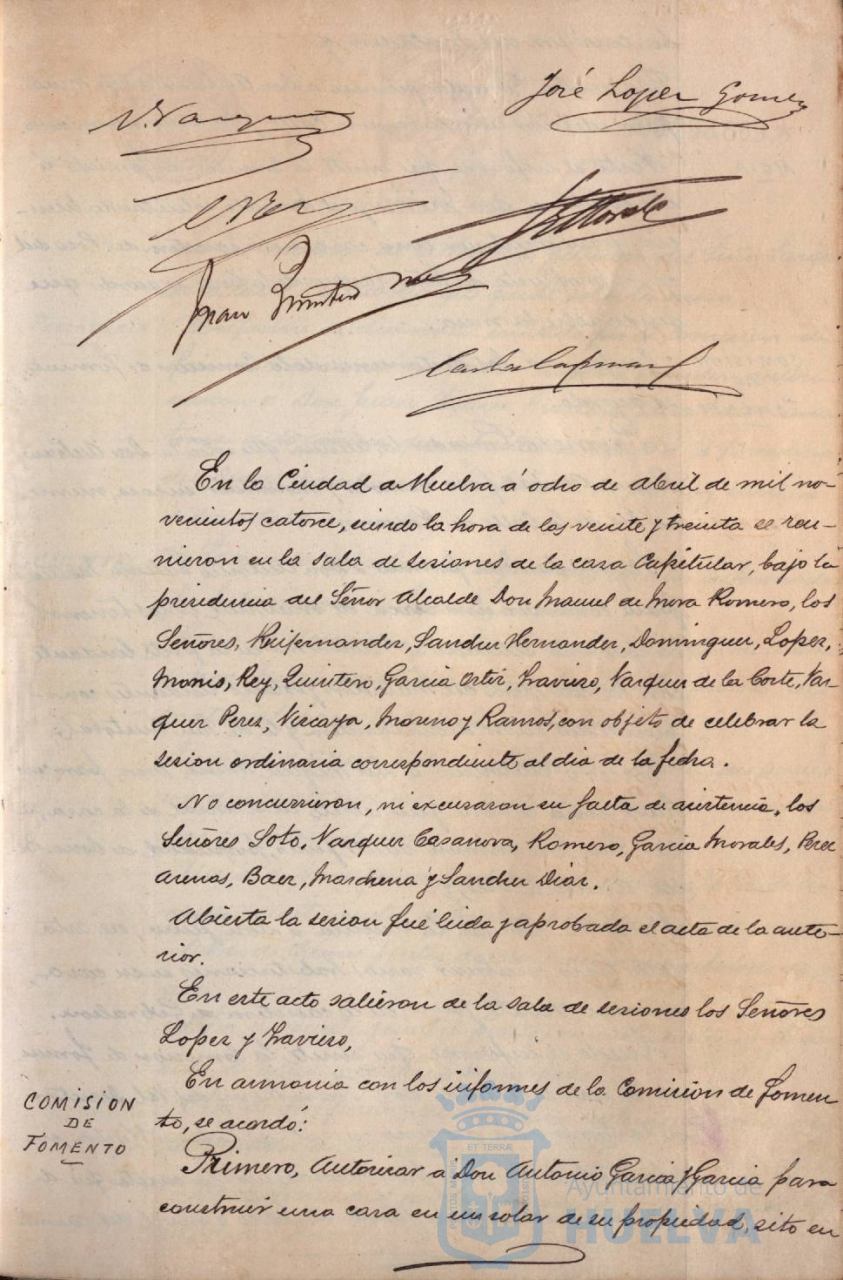 José Lopez Gomez
Juan Quintero
En la Ciudad de Huelva á ocho de Abril de mil no-
vecientos catorce, siendo la hora de las veinte y treinta se reu-
nieron en la sala de sesiones de la casa Capitular, bajo la
presidencia del Señor Alcalde Don Manuel de Mora Romero, los
Señores, Ruifernandez, Sanchez Hernandez, Dominguez, Lopez,
Monis, Rey, Quintero, Garcia Ortiz, Travieso, Vazquez de la Corte, Vaz-
quez Perez, Vizcaya, Moreno y Ramos, con objeto de celebrar la
sesion ordinaria correspondiente al dia de la fecha.
No concurrieron, ni excusaron su falta de asistencia, los
Señores Soto, Vazquez Casanova, Romero, Garcia Morales, Perez
Arenas, Baez, Marchena y Sanchez Diaz.
Abierta la sesion fué leida y aprobada el acta de la ante-
rior.
En este acto salieron de la sala de sesiones los Señores
Lopez y Travieso,
En armonia con los informes de la Comision de Fomen
to, se acordó:
COMISION
DE
FOMENTO
Primero, Autorizar a Don Antonio Garcia y Garcia para
construir una casa en un solar de su propiedad, sito en
ET TERRA
Ayuntamiento de
HUELVA